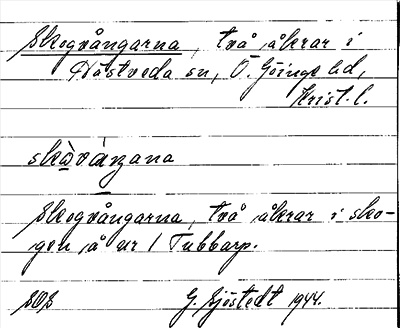 Skogvångarna, två åkrar i
Hästveda sn, Ö. Göinge hd,
Krist. l.
skòvánana
Skogvångarna, två åkrar i sko-
gen å nr 1 Tubbarp.
SOS G. Sjöstedt 1944.